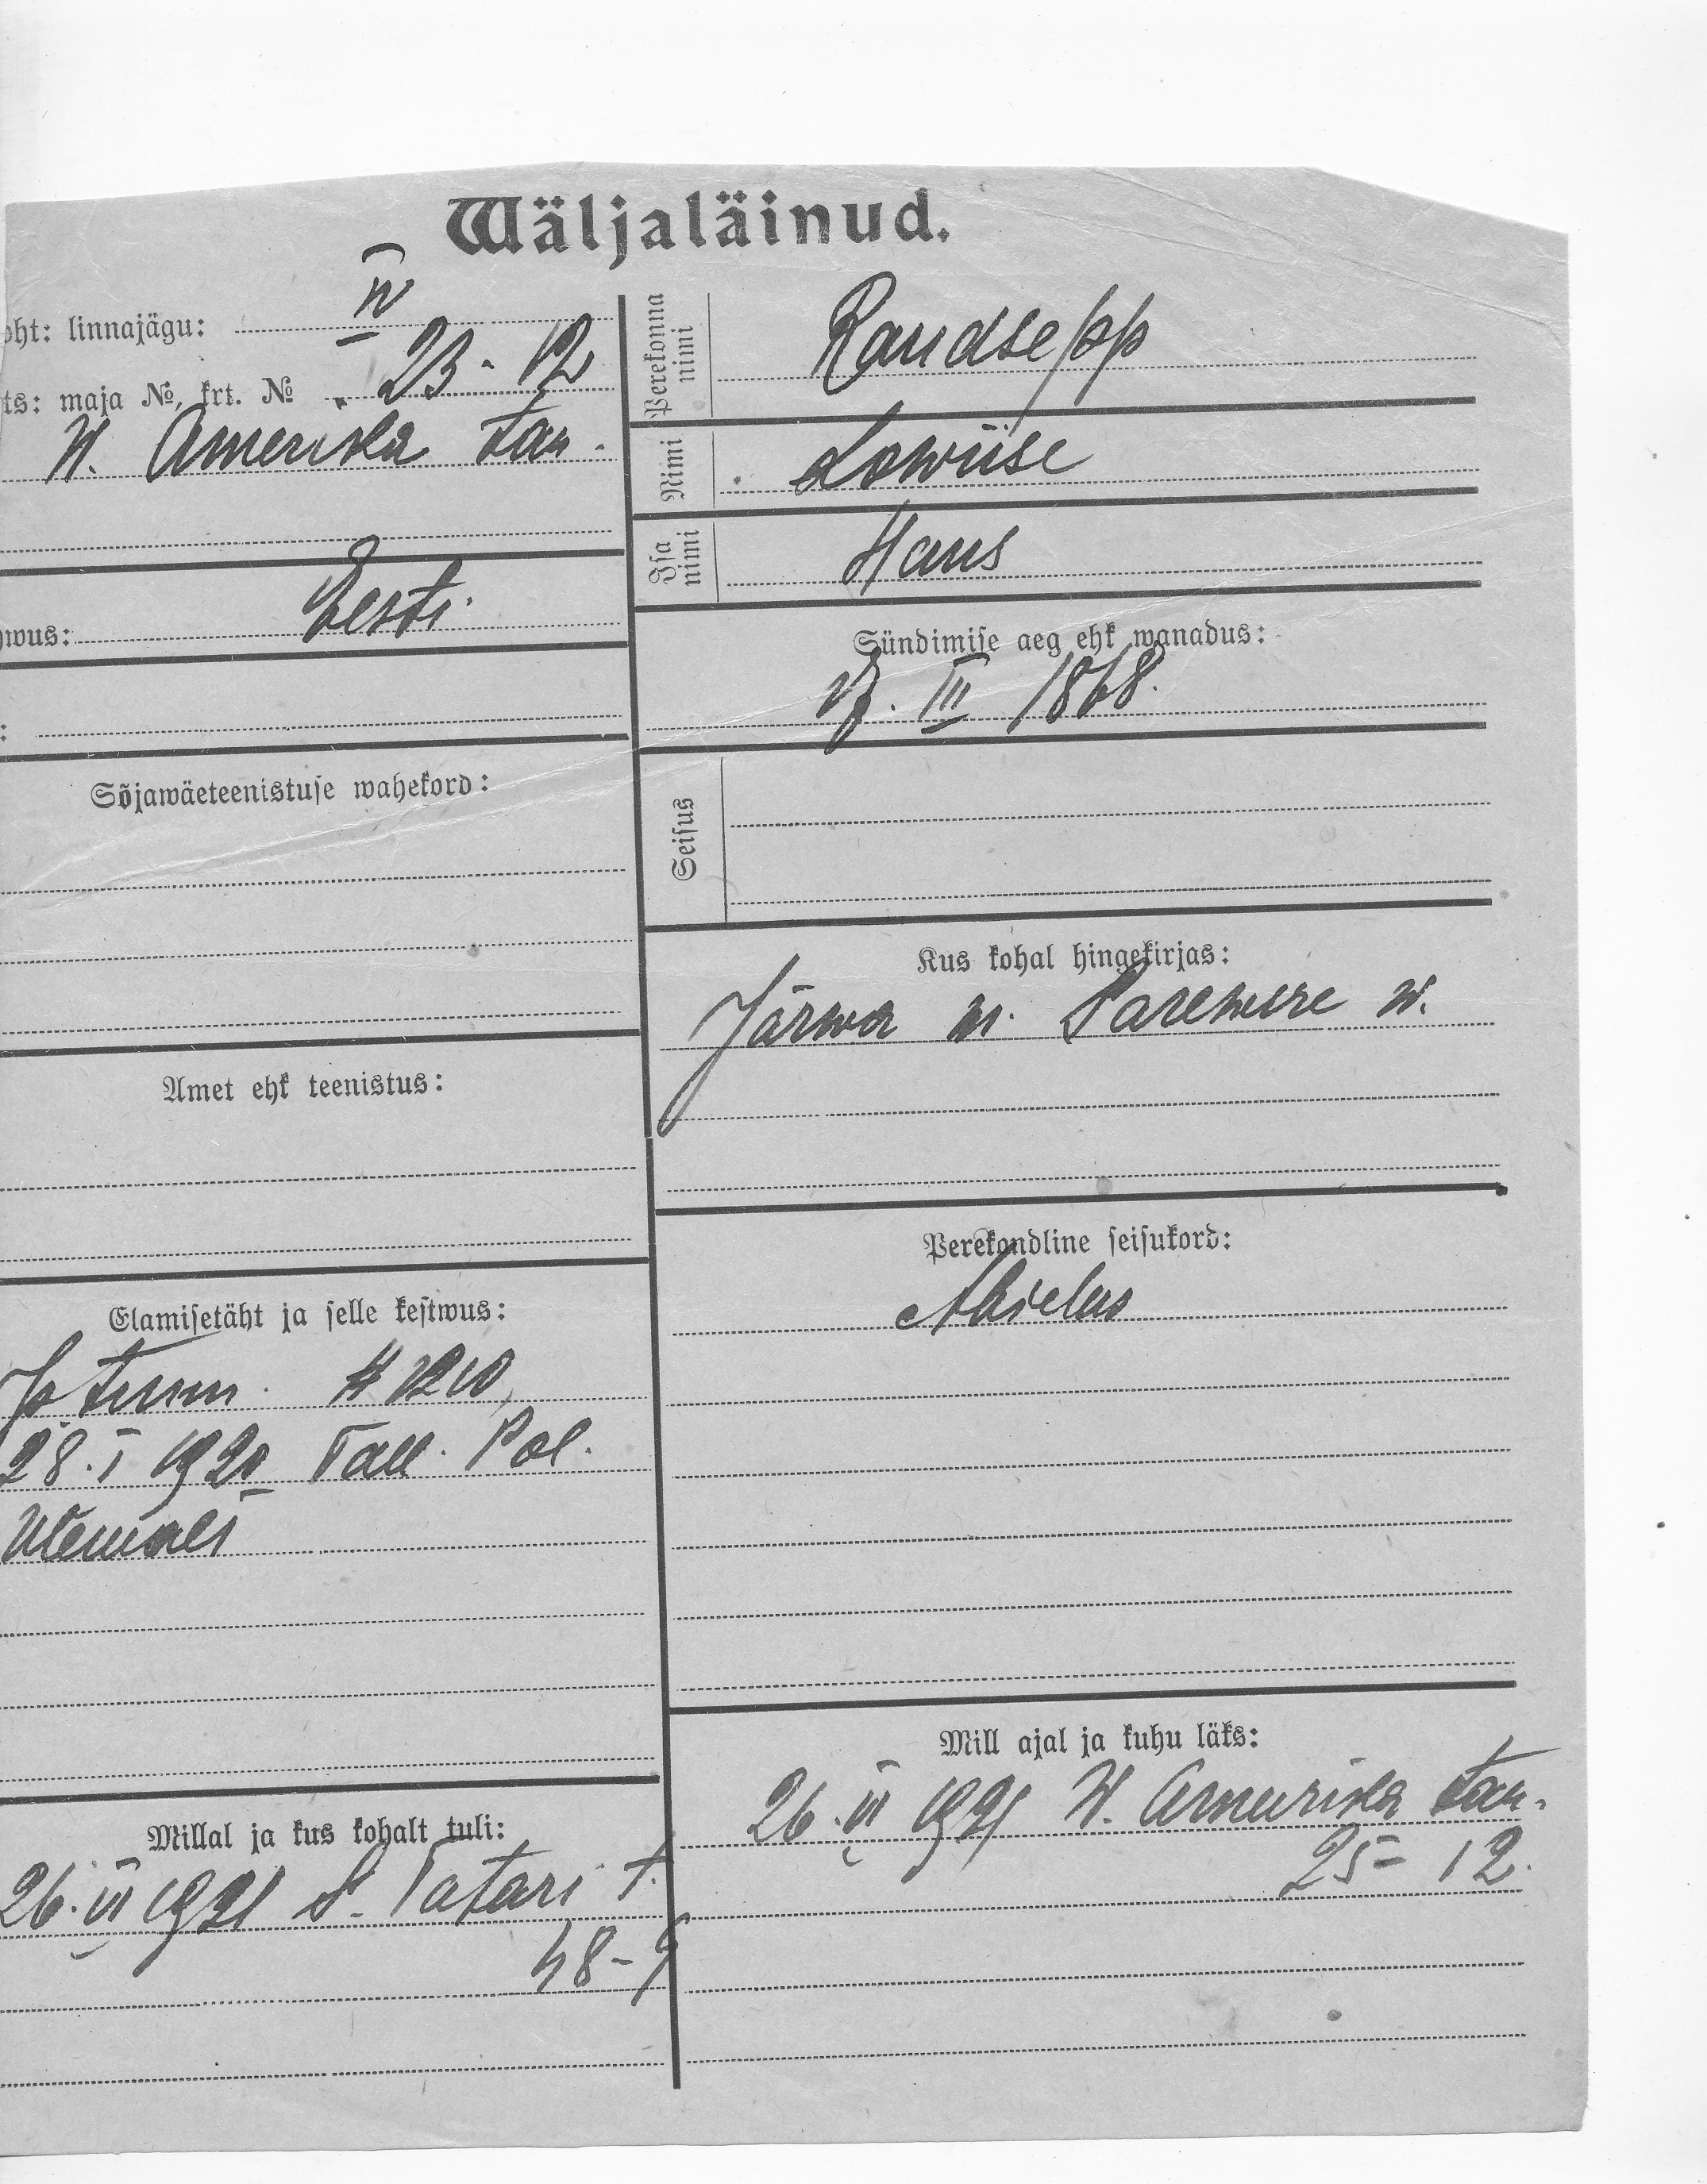 Wäljaläinud.
oht: linnajägu: IV
ts: maja №, krt. № 23-12
W. Amerika tän.
wus: Eesti
:
Sõjawäeteenistuse wahekord:
Amet ehk teenistus:
Elamisetäht ja selle kestwus:
28.I 1920 Tall. Pol.
Millal ja kus kohalt tuli:
26.VI 1921 S. Tatari t.
48-9
Perekonna nimi Raudsepp
Nimi Lowiise
Isa nimi Hans
Sündimise aeg ehk wanadus:
III 1868.
Seisus
Kus kohal hingekirjas:
Järwa m. Särewere w.
Perekondline seisukord:
Abielus
Mill ajal ja kuhu läks:
26.VI 1921 W. Ameerika tän.
25-12.